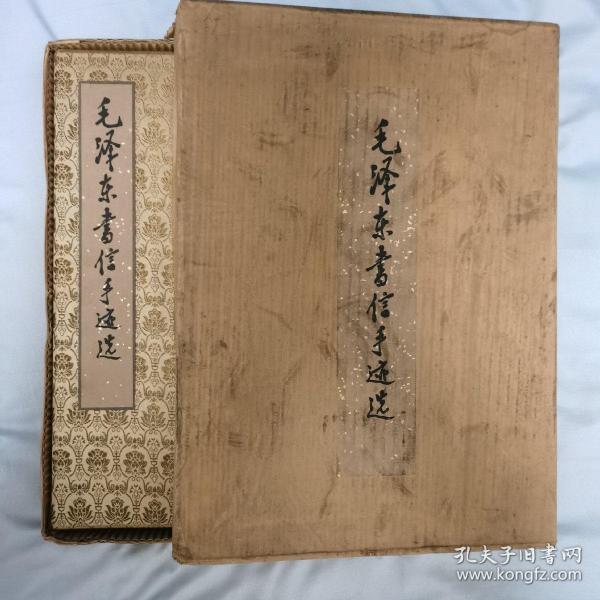 毛泽东书信手迹选
毛泽东书信手迹选
孔夫子旧书网
www.kongfz.com